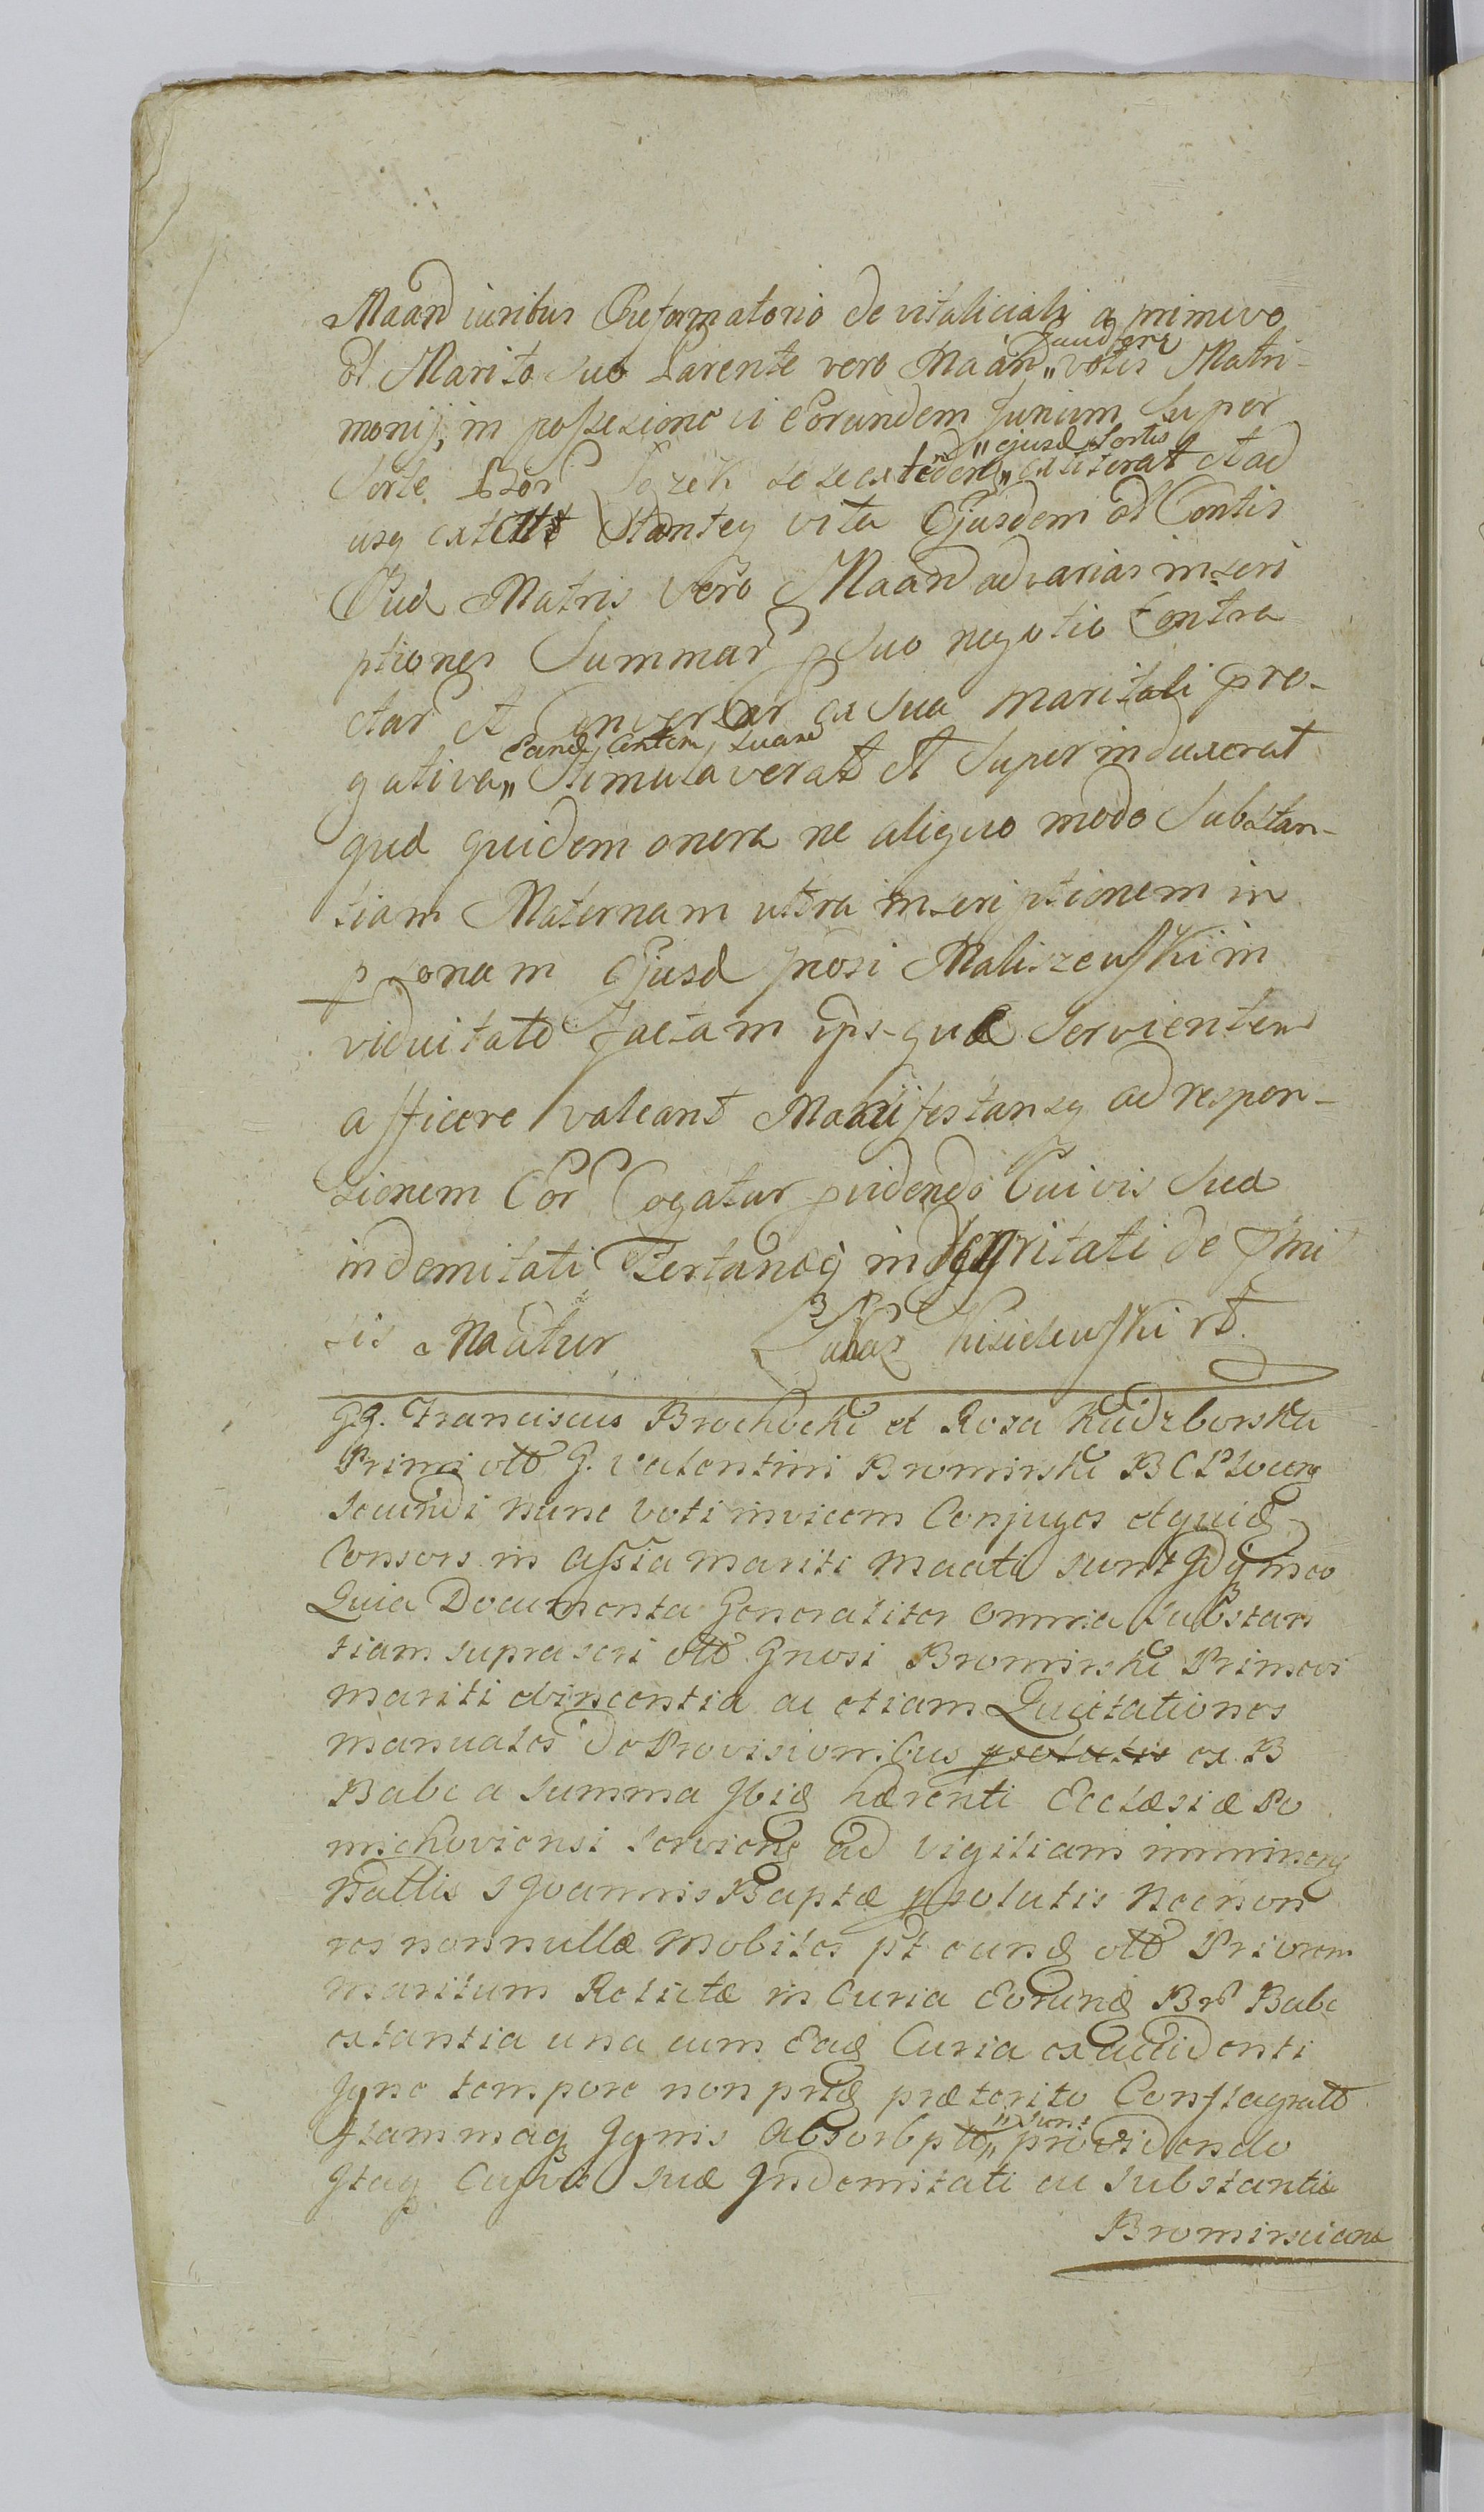 Maand iuribus Reformatorio de vitalicialj a primevo
ol Marito suo Parente vero Maan „ Gaudere votis Matri-
monij, in possesione ei Eorundem Junium super
Sorte Bzor se se extendere „ ejusd Sortis extiterat et ad
usq extat Stanteq vita Ejusdem ol Contis
Suæ Matris vero Maand ad varias inscri
ptiones Summar p suo negotio Contra
ctar et Conversar ex sua maritali pro-
gativa „ Eand Contem suam Stimulaverat et Superinduxerat
quæ quidem onera ne aliquo modo Substan-
tiam Maternam ultra inscriptionem in
psonam Ejusd Gnosi Maliszewski in
viduitate factam ips-quæ Servientem
afficere valeant Manifestansq ad respon-
sionem Cor Cogatur pvidendo Cuivis Suæ
indemitati Testandq integritati de Pmi
sis Maatur Lukasz Kisielewski rd.
GG. Franciscus Brochocki et Rosa Kadzborska
Primi olld G. Valentini Bromirski B C Plocen
Secundi nunc Voti invicem Conjuges et quid
Consors in assia mariti Maati sunt Idq meo
Quia Documenta Generaliter Omnia Substan
tiam suprascri olld Gnosi Bromirski Primevi
mariti evincentia ac etiam Quietationes
manuales de Provisionibus psolutis ex B
Babc a Summa Ibid hærenti Ecclæsiæ Po
michoviensi serviend ad Vigiliam imminen
Natlis S Joannis Baptæ psolutis Necnon
res nonnullæ Mobiles pt eund olld Priorem
maritum Relictæ in Curia Eorund Br Babc
extantia una cum Ead Curia ex accidenti
Igne tempore non prid præterito Conflagratd
flammaq Ignis Absorbptd „ sunt providendo
Itaq Cujvis suæ Indemitati ac Substantiæ
Bromirsciana